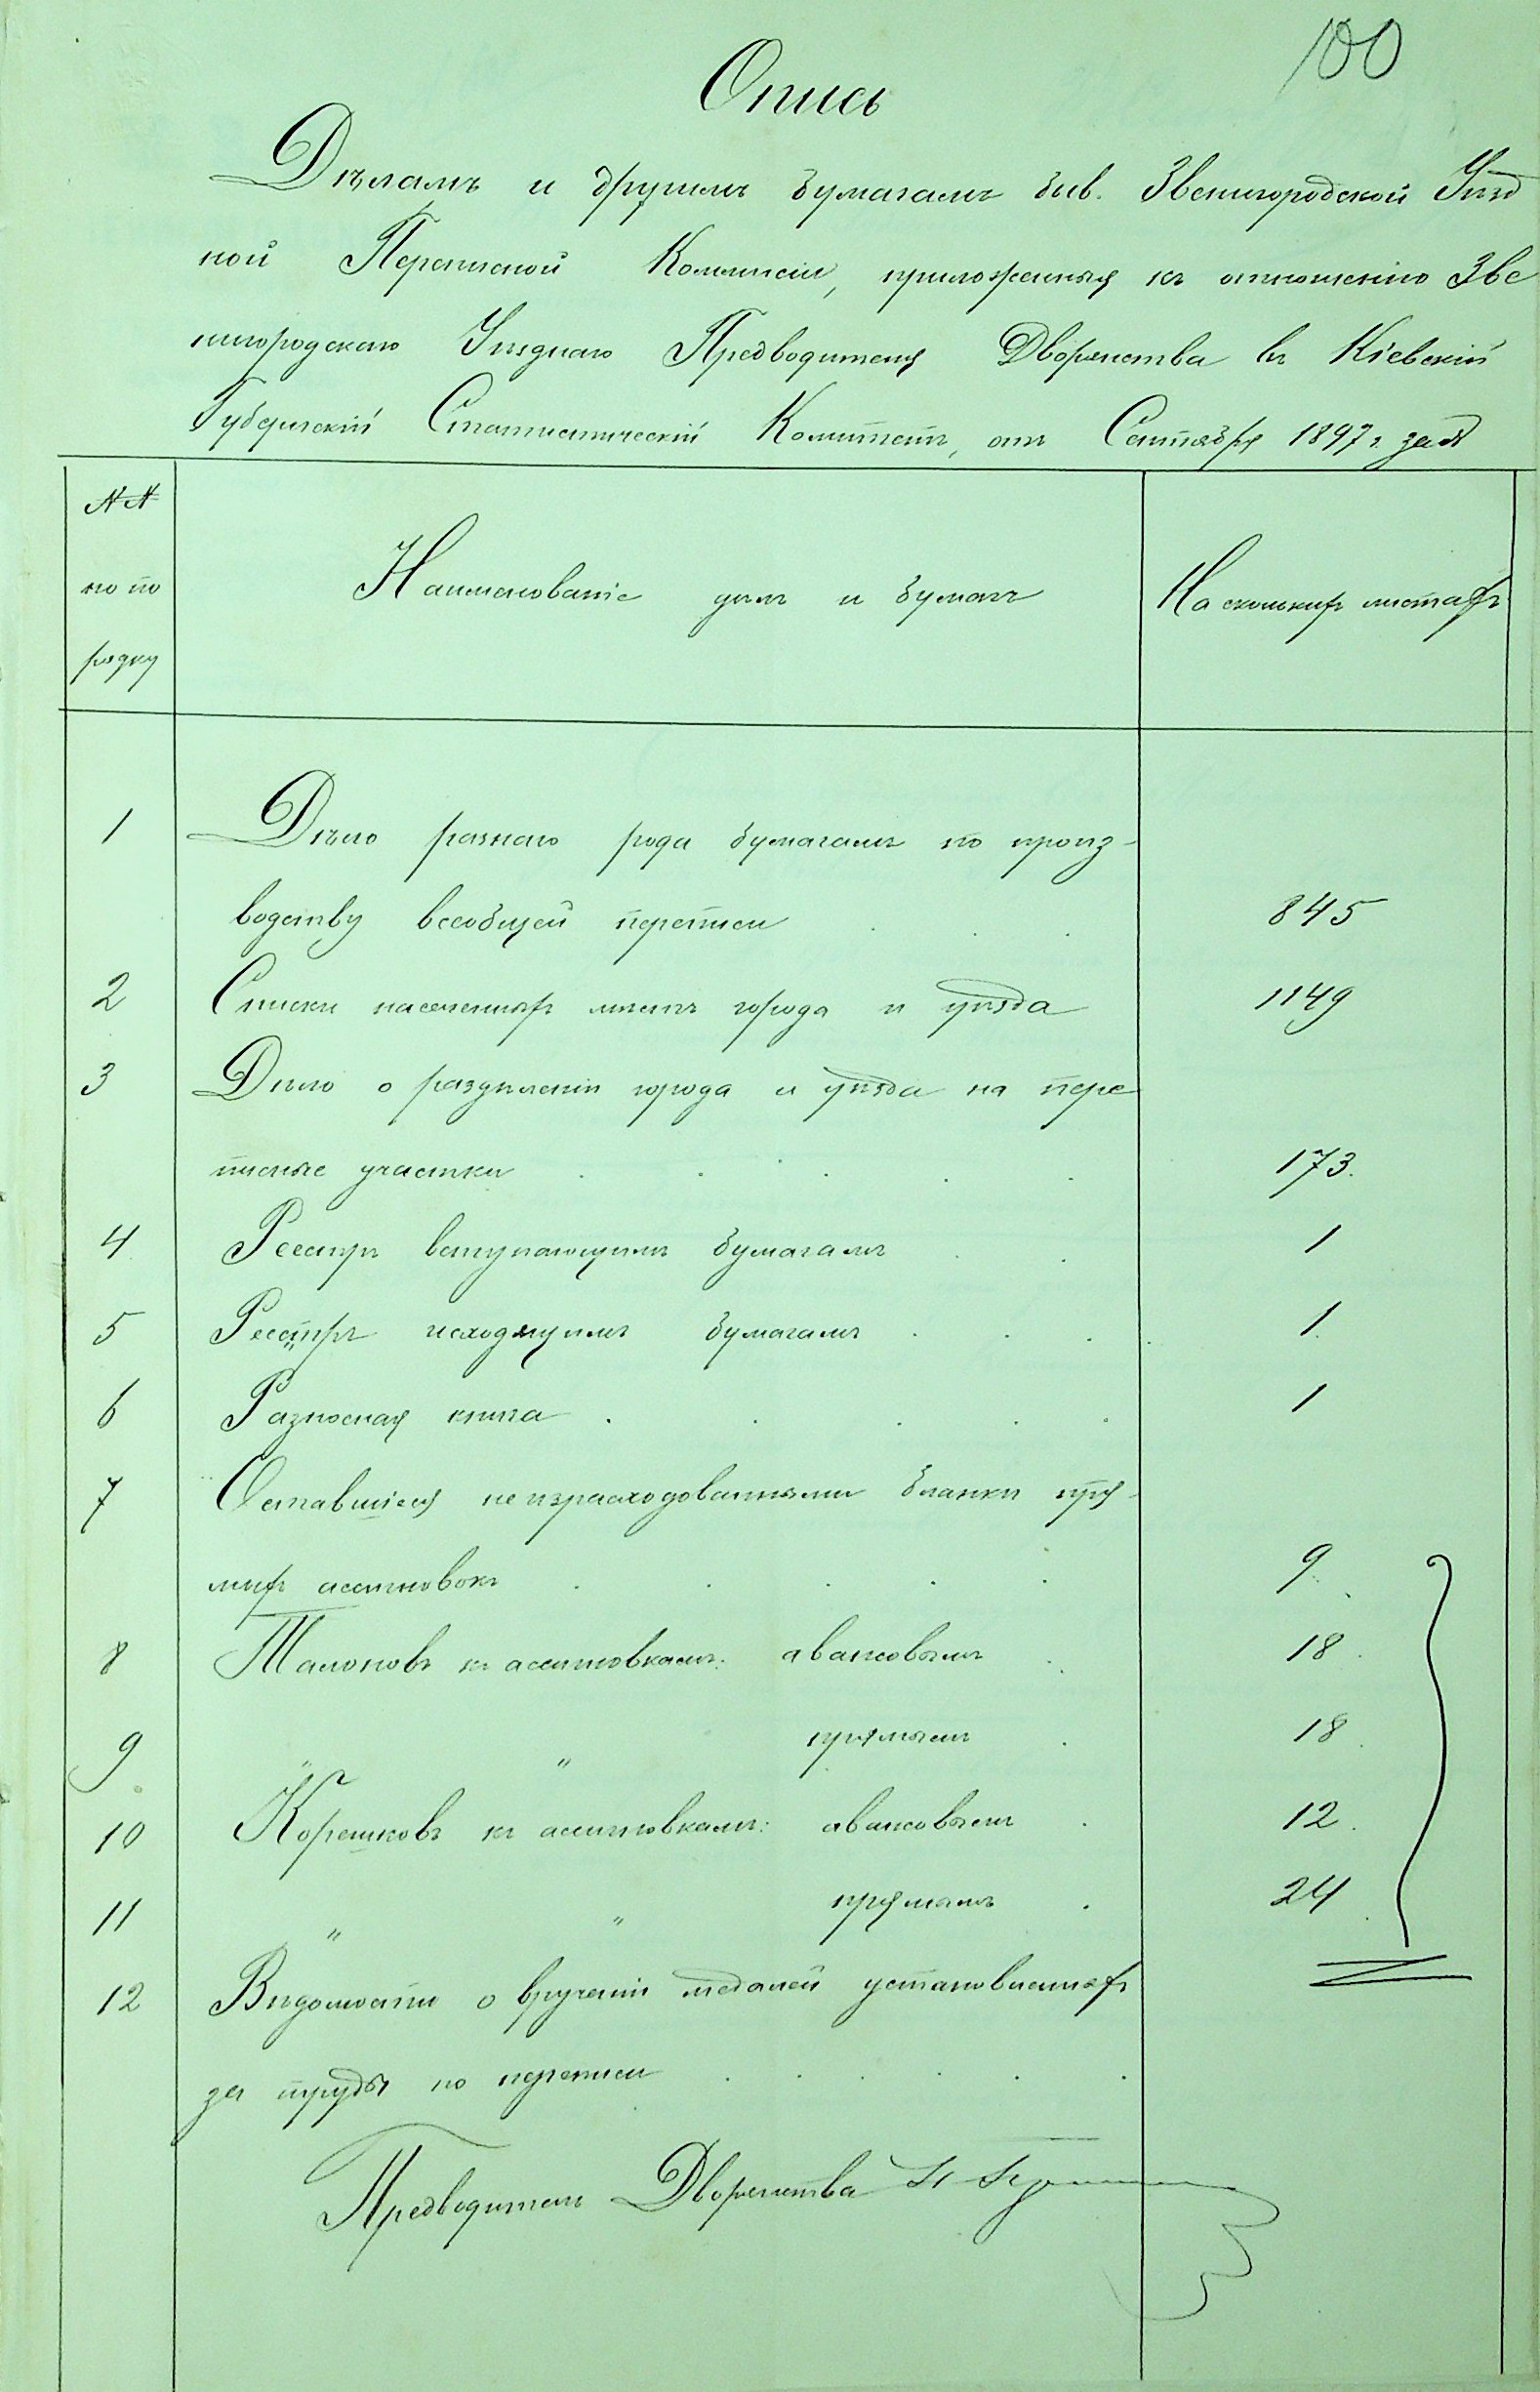 100
Опись
Дѣламъ и другимъ бумагамъ быв. Звенигородской Уѣзд
ной Переписной Коммисіи, приложенныя къ отношенію Зве
нигородскаго Уѣзднаго Предводителя Дворянства въ Кіевскій
Губернскій Статистическій Комитетъ, отъ Сентября 1897 г. за №
№№ по по рядку
Наименованіе дѣлъ и бумагъ
На сколькихъ листахъ
1 Дѣло разнаго рода бумагамъ по произ-
водству всеобщей переписи . . . 845
2 Списки населенныхъ мѣстъ города и уѣзда 1149
3 Дѣло о раздѣленіи города и уѣзда на пере
писные участки . . . . . 173.
4 Реестръ вступающимъ бумагамъ . . 1
5 Реестръ исходящимъ бумагамъ . . . 1
6 Разносная книга . . . . . 1
7 Оставшіеся неизрасходованными бланки пря-
мыхъ ассигновокъ . . . . . 9
8 Талоновъ къ ассигновкамъ: авансовымъ . 18
9 " " прямымъ . 18
10 Корешковъ къ ассигновкамъ: авансовымъ . 12.
11 " " прямымъ . 24
12 Вѣдомости о врученіи медалей установленныхъ
за труды по переписи . . . . .
Предводитель Дворянства